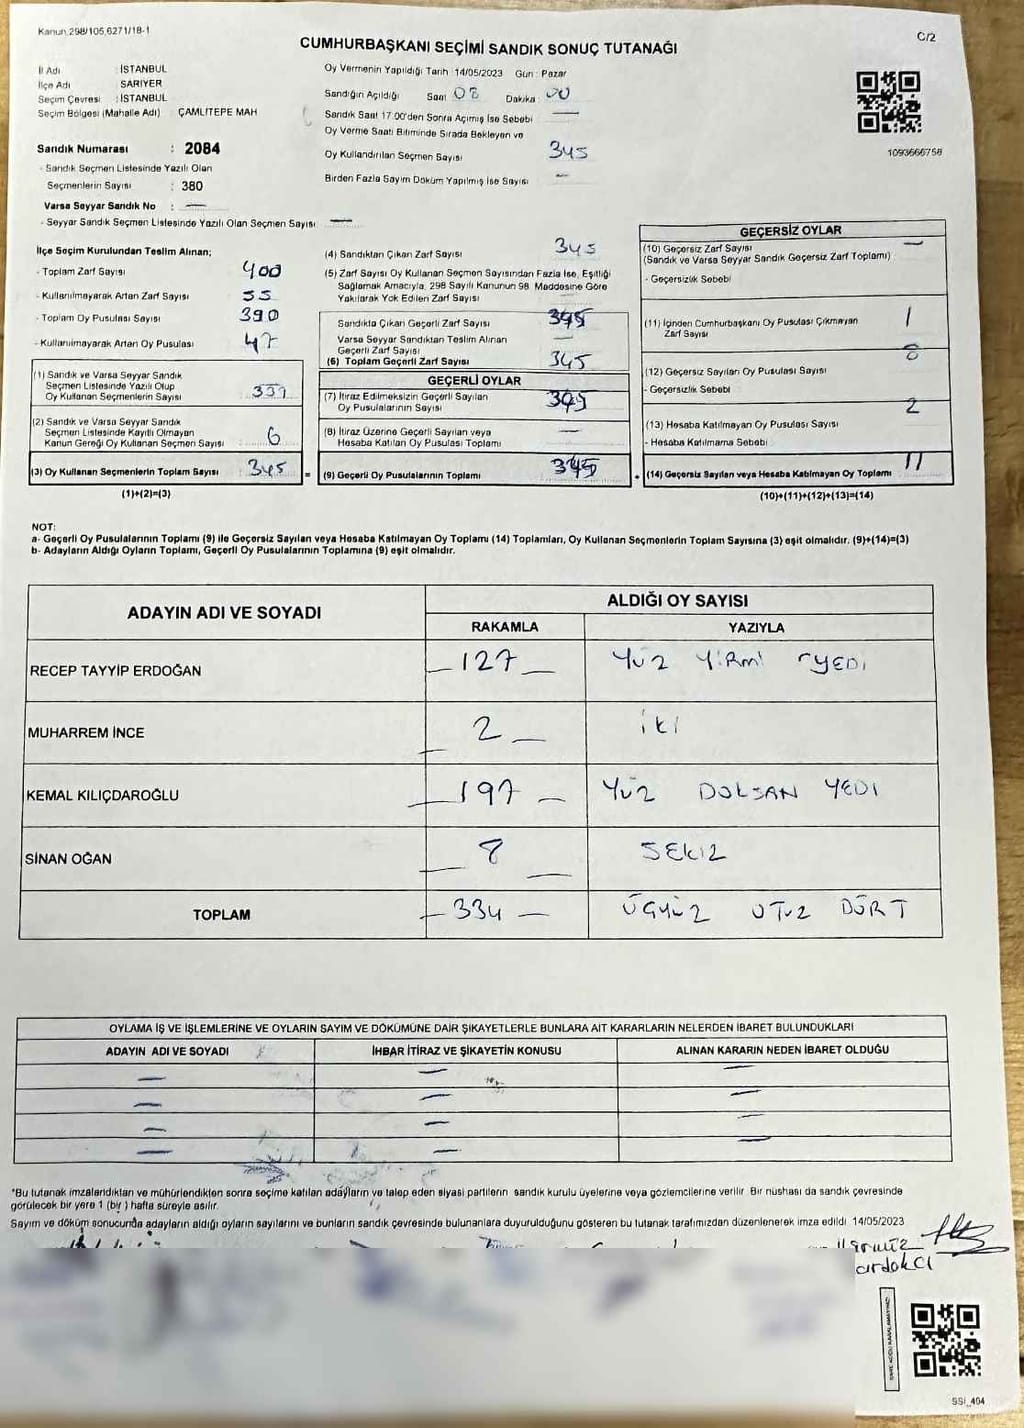 Kanun,298/105,6271/18-1
C/2
CUMHURBAŞKANI SEÇİMİ SANDIK SONUÇ TUTANAĞI
İl Adı : İSTANBUL
İlçe Adı : SARIYER
Seçim Çevresi : İSTANBUL
Seçim Bölgesi (Mahalle Adı) ÇAMLITEPE MAH
Sandık Numarası : 2084
- Sandık Seçmen Listesinde Yazılı Olan
Seçmenlerin Sayısı : 380
Varsa Seyyar Sandık No : —
- Seyyar Sandık Seçmen Listesinde Yazılı Olan Seçmen Sayısı —
Oy Vermenin Yapıldığı Tarih 14/05/2023 Gün : Pazar
Sandığın Açıldığı Saat 08 Dakika 00
Sandık Saat 17.00'den Sonra Açmış İse Sebebi —
Oy Verme Saati Bitiminde Sırada Bekleyen ve
Oy Kullandırılan Seçmen Sayısı 345
Birden Fazla Sayım Döküm Yapılmış İse Sayısı —
1093666758
İlçe Seçim Kurulundan Teslim Alınan;
- Toplam Zarf Sayısı 400
- Kullanılmayarak Artan Zarf Sayısı 55
- Toplam Oy Pusulası Sayısı 390
- Kullanılmayarak Artan Oy Pusulası 47
(1) Sandık ve Varsa Seyyar Sandık
Seçmen Listesinde Yazılı Olup
Oy Kullanan Seçmenlerin Sayısı 339
(2) Sandık ve Varsa Seyyar Sandık
Seçmen Listesinde Kayıtlı Olmayan
Kanun Gereği Oy Kullanan Seçmen Sayısı 6
(3) Oy Kullanan Seçmenlerin Toplam Sayısı 345 =
(1)+(2)=(3)
(4) Sandıktan Çıkan Zarf Sayısı 345
(5) Zarf Sayısı Oy Kullanan Seçmen Sayısından Fazla İse, Eşitliği
Sağlamak Amacıyla, 298 Sayılı Kanunun 98. Maddesine Göre
Yakılarak Yok Edilen Zarf Sayısı
Sandıkta Çıkan Geçerli Zarf Sayısı 345
Varsa Seyyar Sandıktan Teslim Alınan
Geçerli Zarf Sayısı —
(6) Toplam Geçerli Zarf Sayısı 345
GEÇERLİ OYLAR
(7) İtiraz Edilmeksizin Geçerli Sayılan
Oy Pusulalarının Sayısı
(8) İtiraz Üzerine Geçerli Sayılan veya
Hesaba Katılan Oy Pusulası Toplamı —
(9) Geçerli Oy Pusulalarının Toplamı +
GEÇERSİZ OYLAR
(10) Geçersiz Zarf Sayısı —
(Sandık ve Varsa Seyyar Sandık Geçersiz Zarf Toplamı)
- Geçersizlik Sebebi
(11) İçinden Cumhurbaşkanı Oy Pusulası Çıkmayan 1
Zarf Sayısı
8
(12) Geçersiz Sayılan Oy Pusulası Sayısı
- Geçersizlik Sebebi
2
(13) Hesaba Katılmayan Oy Pusulası Sayısı
- Hesaba Katılmama Sebebi
(14) Geçersiz Sayılan veya Hesaba Katılmayan Oy Toplamı 11
(10)+(11)+(12)+(13)=(14)
NOT:
a- Geçerli Oy Pusulalarının Toplamı (9) ile Geçersiz Sayılan veya Hesaba Katılmayan Oy Toplamı (14) Toplamları, Oy Kullanan Seçmenlerin Toplam Sayısına (3) eşit olmalıdır. (9)+(14)=(3)
b- Adayların Aldığı Oyların Toplamı, Geçerli Oy Pusulalarının Toplamına (9) eşit olmalıdır.
ADAYIN ADI VE SOYADI
ALDIĞI OY SAYISI
RAKAMLA YAZIYLA
RECEP TAYYİP ERDOĞAN — 127 — YÜZ YİRMİ YEDİ
MUHARREM İNCE — 2 — İKİ
KEMAL KILIÇDAROĞLU — 197 — YÜZ DOKSAN YEDİ
SİNAN OĞAN — 8 — SEKİZ
TOPLAM — 334 — ÜÇYÜZ OTUZ DÖRT
OYLAMA İŞ VE İŞLEMLERİNE VE OYLARIN SAYIM VE DÖKÜMÜNE DAİR ŞİKAYETLERLE BUNLARA AİT KARARLARIN NELERDEN İBARET BULUNDUKLARI
ADAYIN ADI VE SOYADI İHBAR İTİRAZ VE ŞİKAYETİN KONUSU ALINAN KARARIN NEDEN İBARET OLDUĞU
— — —
— — —
— — —
— — —
*Bu tutanak imzalandıktan ve mühürlendikten sonra seçime katılan adayların ve talep eden siyasi partilerin sandık kurulu üyelerine veya gözlemcilerine verilir. Bir nüshası da sandık çevresinde
görülecek bir yere 1 (bir ) hafta süreyle asılır.
Sayım ve döküm sonucunda adayların aldığı oyların sayılarını ve bunların sandık çevresinde bulunanlara duyurulduğunu gösteren bu tutanak tarafımızdan düzenlenerek imza edildi. 14/05/2023
SSİ_404